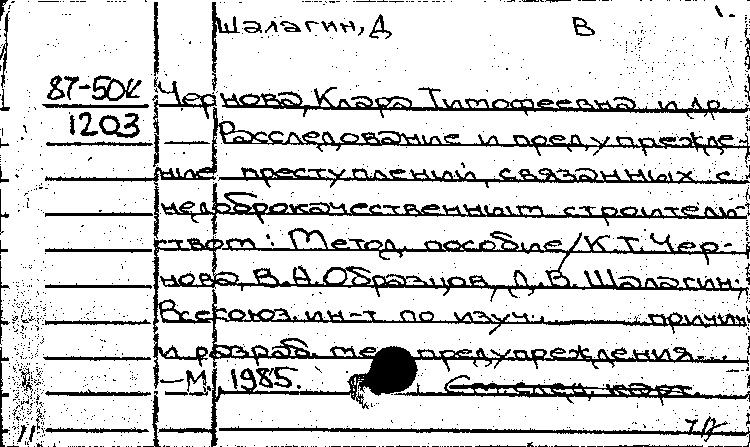 Шалагин, Д В
87-50К Чернова, Клара Тимофеевна и др.
1203 Расследование и предупрежде-
ние преступлений, связанных с
недоброкачественным строитель-
ством: Метод. пособие/К.Т. Чер-
нова, В.А. Образцов, Д.В. Шалагин;
Всесоюз. ин-т по изуч. причин
и разраб. мер предупреждения...
—М., 1985. См. след. карт.